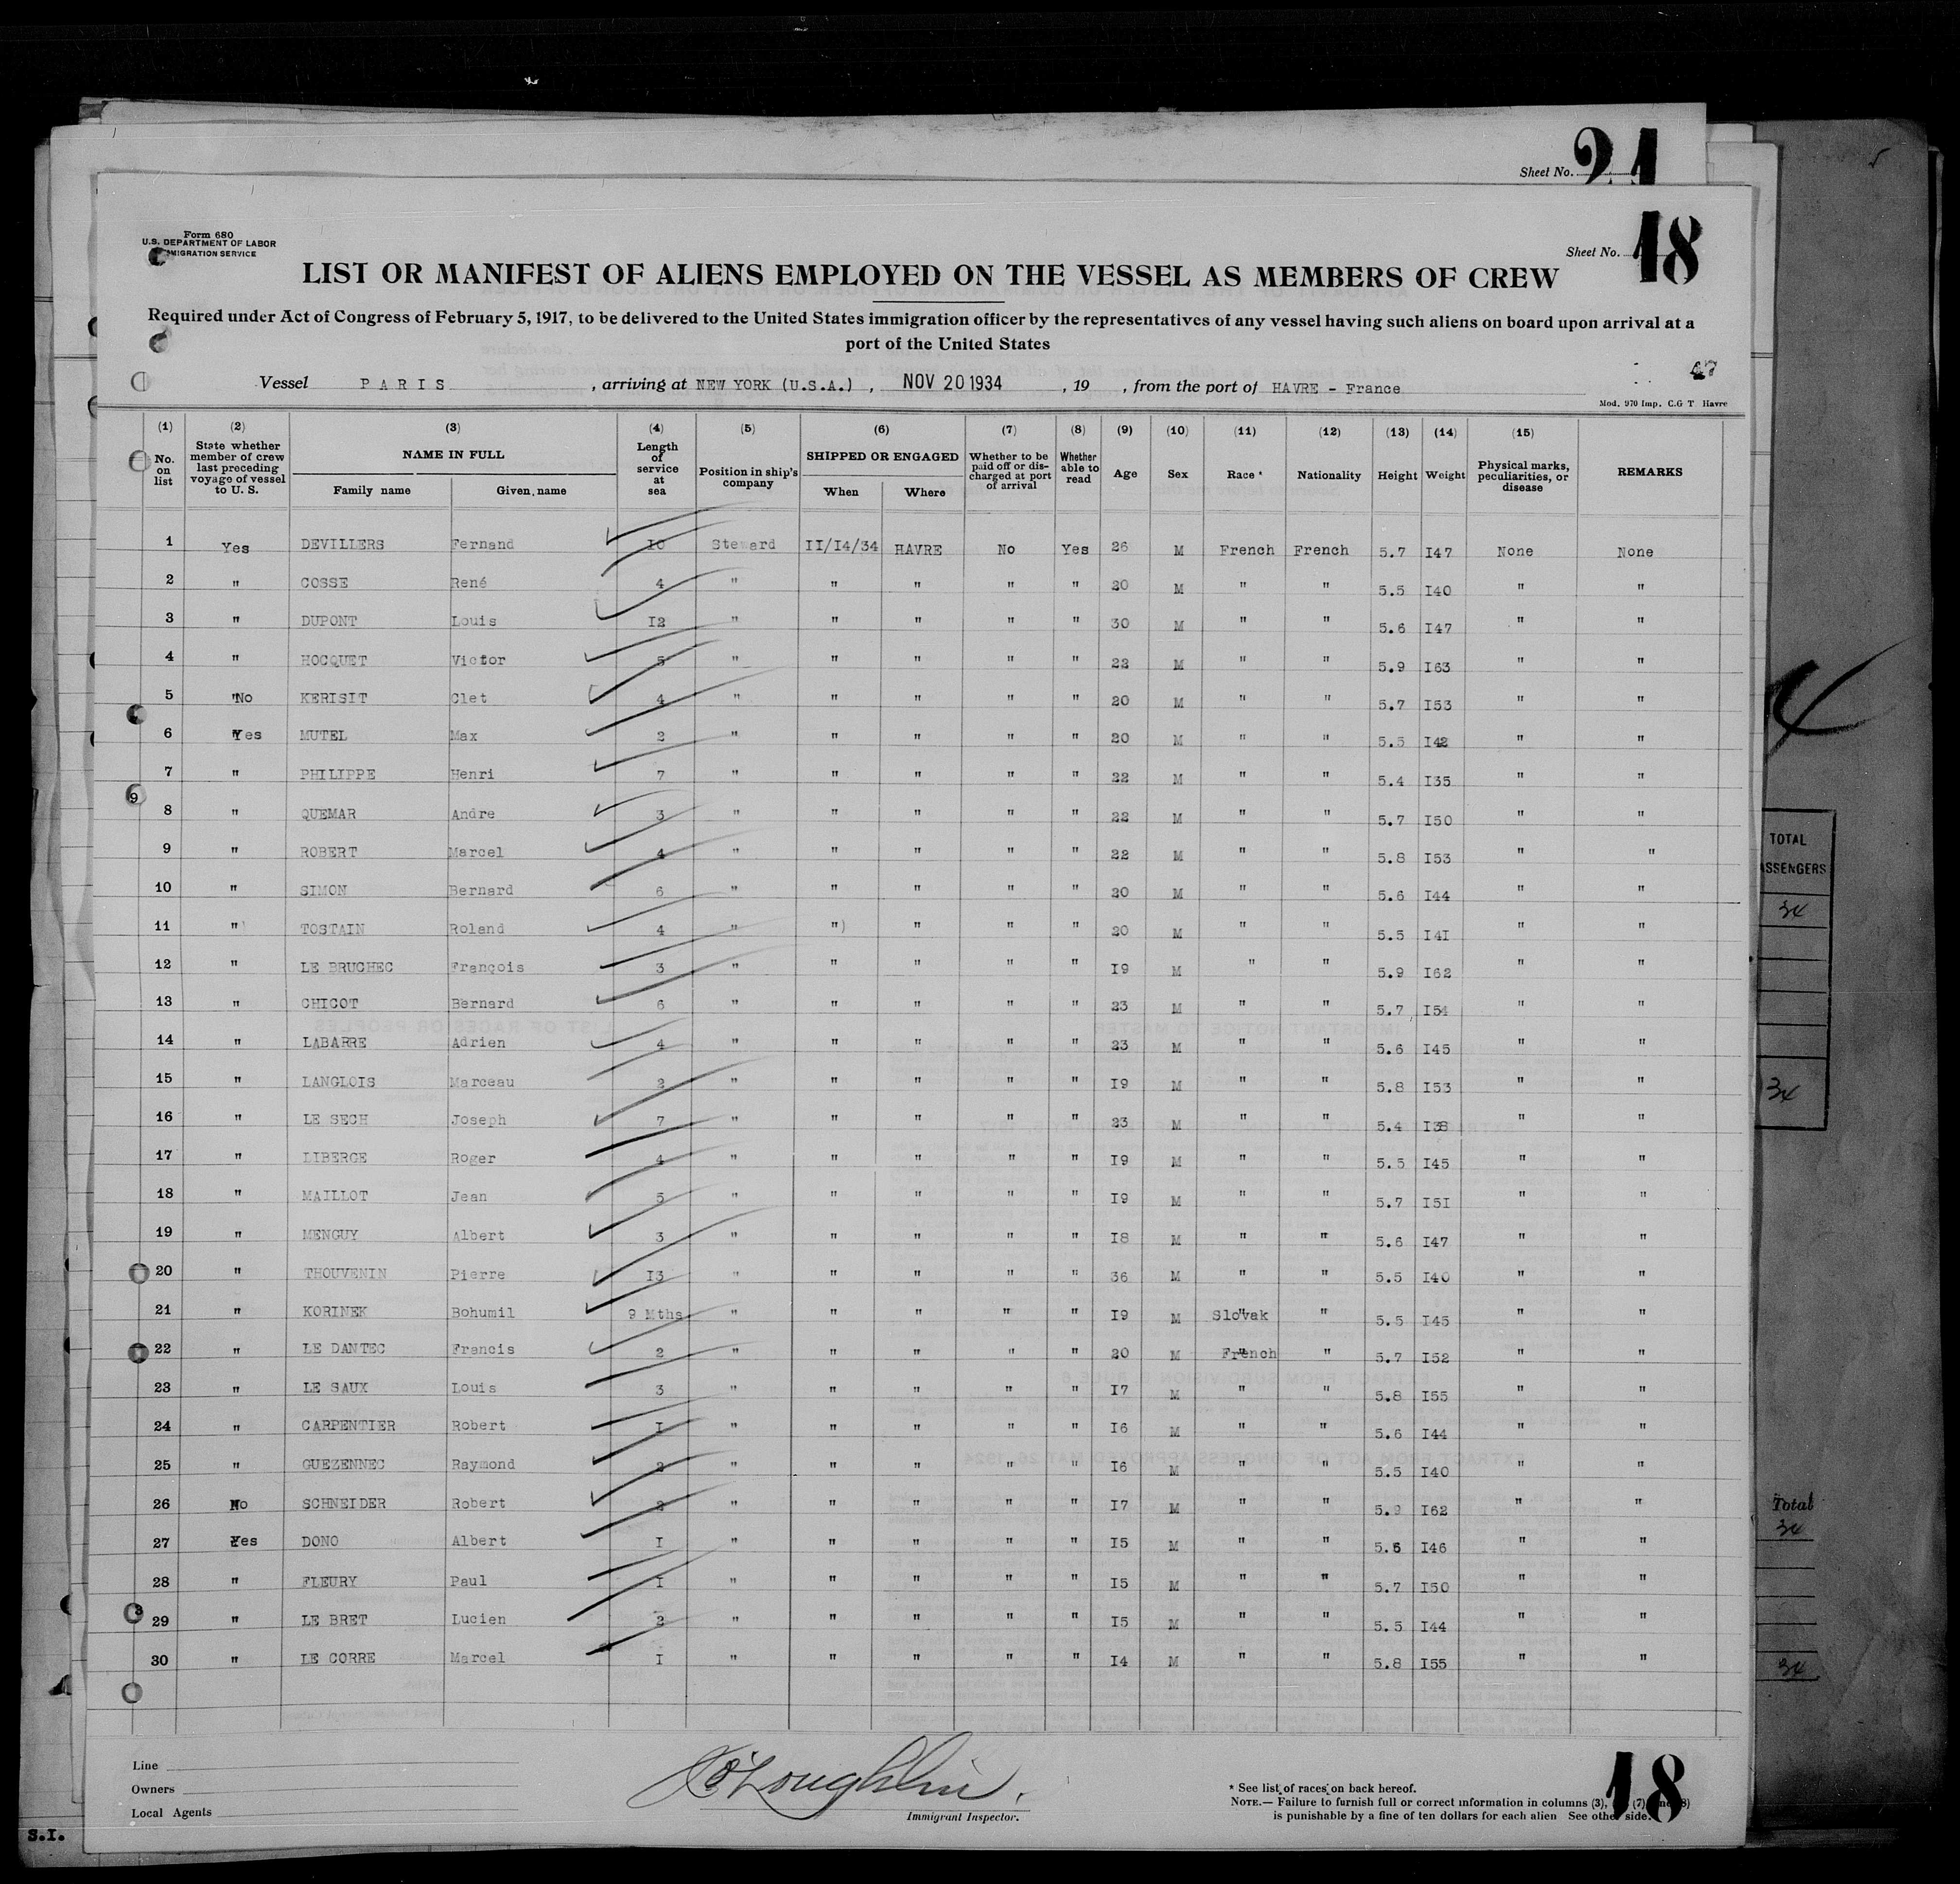 Sheet No. 21
Form 680
U.S. DEPARTMENT OF LABOR
IMMIGRATION SERVICE
Sheet No. 18
LIST OR MANIFEST OF ALIENS EMPLOYED ON THE VESSEL AS MEMBERS OF CREW
Required under Act of Congress of February 5, 1917, to be delivered to the United States immigration officer by the representatives of any vessel having such aliens on board upon arrival at a
port of the United States
Vessel PARIS, arriving at NEW YORK (U.S.A.), NOV 20 1934, 19 , from the port of HAVRE - France
Mod. 970 Imp. C.G T Havre
(1) (2) (3) (4) (5) (6) (7) (8) (9) (10) (11) (12) (13) (14) (15)
No. on list State whether member of crew last preceding voyage of vessel to U. S. NAME IN FULL Family name Given name Length of service at sea Position in ship's company SHIPPED OR ENGAGED When Where Whether to be paid off or discharged at port of arrival Whether able to read Age Sex Race * Nationality Height Weight Physical marks, peculiarities, or disease REMARKS
1 Yes DEVILLERS Fernand 10 Steward II/I4/34 HAVRE No Yes 26 M French French 5.7 I47 None None
2 " COSSE René 4 " " " " " 20 M " " 5.5 I40 " "
3 " DUPONT Louis I2 " " " " " 30 M " " 5.6 I47 " "
4 " HOCQUET Victor 5 " " " " " 22 M " " 5.9 I63 " "
5 "No KERISIT Clet 4 " " " " " 20 M " " 5.7 I53 " "
6 Yes MUTEL Max 2 " " " " " 20 M " " 5.5 I42 " "
7 " PHILIPPE Henri 7 " " " " " 22 M " " 5.4 I35 " "
8 " QUEMAR Andre 3 " " " " " 22 M " " 5.7 I50 " "
9 " ROBERT Marcel 4 " " " " " 22 M " " 5.8 I53 " "
10 " SIMON Bernard 6 " " " " " 20 M " " 5.6 I44 " "
11 " TOSTAIN Roland 4 " ") " " " 20 M " " 5.5 I4I " "
12 " LE BRUCHEC François 3 " " " " " I9 M " " 5.9 I62 " "
13 " CHICOT Bernard 6 " " " " " 23 M " " 5.7 I54 " "
14 " LABARRE Adrien 4 " " " " " 23 M " " 5.6 I45 " "
15 " LANGLOIS Marceau 2 " " " " " I9 M " " 5.8 I53 " "
16 " LE SECH Joseph 7 " " " " " 23 M " " 5.4 " "
17 " LIBERGE Roger 4 " " " " " I9 M " " 5.5 I45 " "
18 " MAILLOT Jean 5 " " " " " I9 M " " 5.7 I5I " "
19 " MENGUY Albert 3 " " " " " I8 M " " 5.6 I47 " "
20 " THOUVENIN Pierre I3 " " " " " 36 M " " 5.5 I40 " "
21 " KORINEK Bohumil 9 Mths " " " " " I9 M Slovak " 5.5 I45 " "
22 " LE DANTEC Francis 2 " " " " " 20 M French " 5.7 I52 " "
23 " LE SAUX Louis 3 " " " " " I7 M " " 5.8 I55 " "
24 " CARPENTIER Robert I " " " " " I6 M " " 5.6 I44 " "
25 " GUEZENNEC Raymond 2 " " " " " I6 M " " 5.5 I40 " "
26 No SCHNEIDER Robert 2 " " " " " I7 M " " 5.9 I62 " "
27 Yes DONO Albert I " " " " " I5 M " " 5.6 I46 " "
28 " FLEURY Paul I " " " " " I5 M " " 5.7 I50 " "
29 " LE BRET Lucien 2 " " " " " I5 M " " 5.5 I44 " "
30 " LE CORRE Marcel I " " " " " I4 M " " 5.8 I55 " "
Line
Owners
Local Agents
O'Loughlin
Immigrant Inspector.
* See list of races on back hereof.
NOTE.— Failure to furnish full or correct information in columns (3), (7)
is punishable by a fine of ten dollars for each alien See other side.
18
S.I.
TOTAL
34
34
Total
34
34